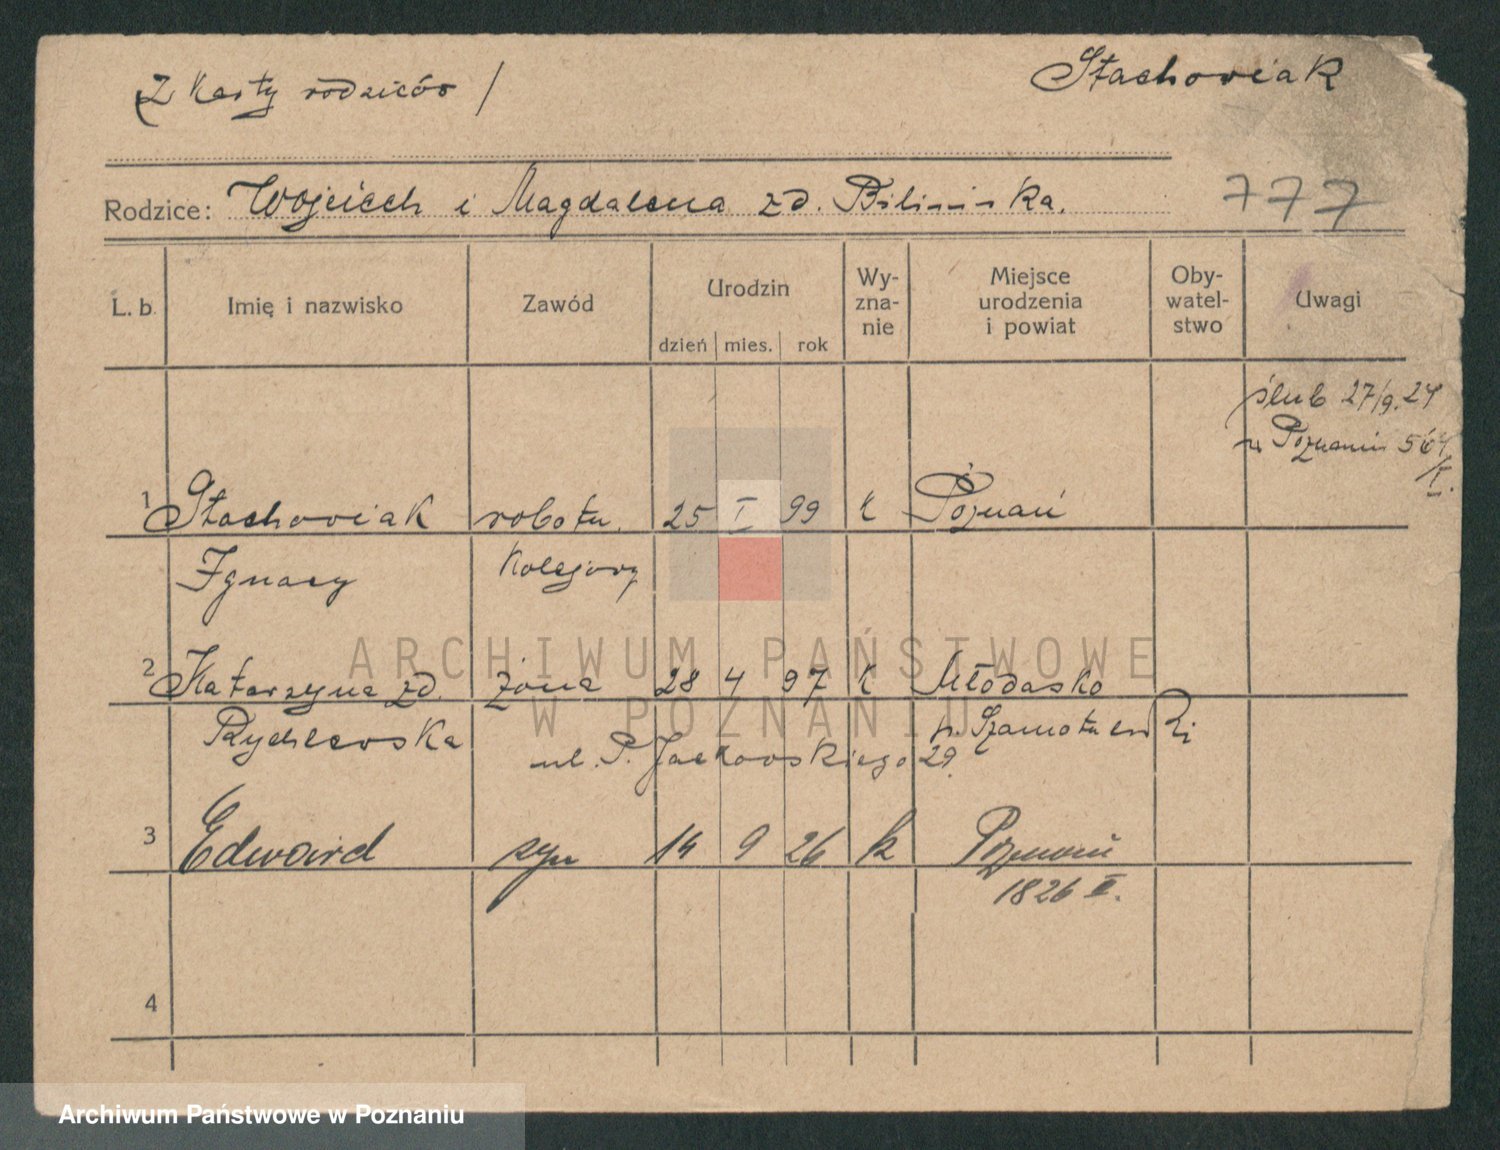 Z Karty rodziców /
Stachowiak
Rodzice: Wojciech i Magdalena zd. Bilińska.
777
L. b.
Imię i nazwisko
Zawód
Urodzin
dzień mies. rok
Wy-
zna-
nie
Miejsce
urodzenia
i powiat
Oby-
watel-
stwo
Uwagi
ślub 27/9.24
w Poznaniu 564
1 Stachowiak robotn. 25 I 99 k Poznań
Ignacy kolejowy
2 Katarzyna zd. żona 28 4 97 k Młodasko
Rychlewska p. Szamotulski
ul. P. Jackowskiego 29.
3 Edward syn 14 9 26 k Poznań
1826 II.
4
ARCHIWUM PAŃSTWOWE
W POZNANIU
Archiwum Państwowe w Poznaniu